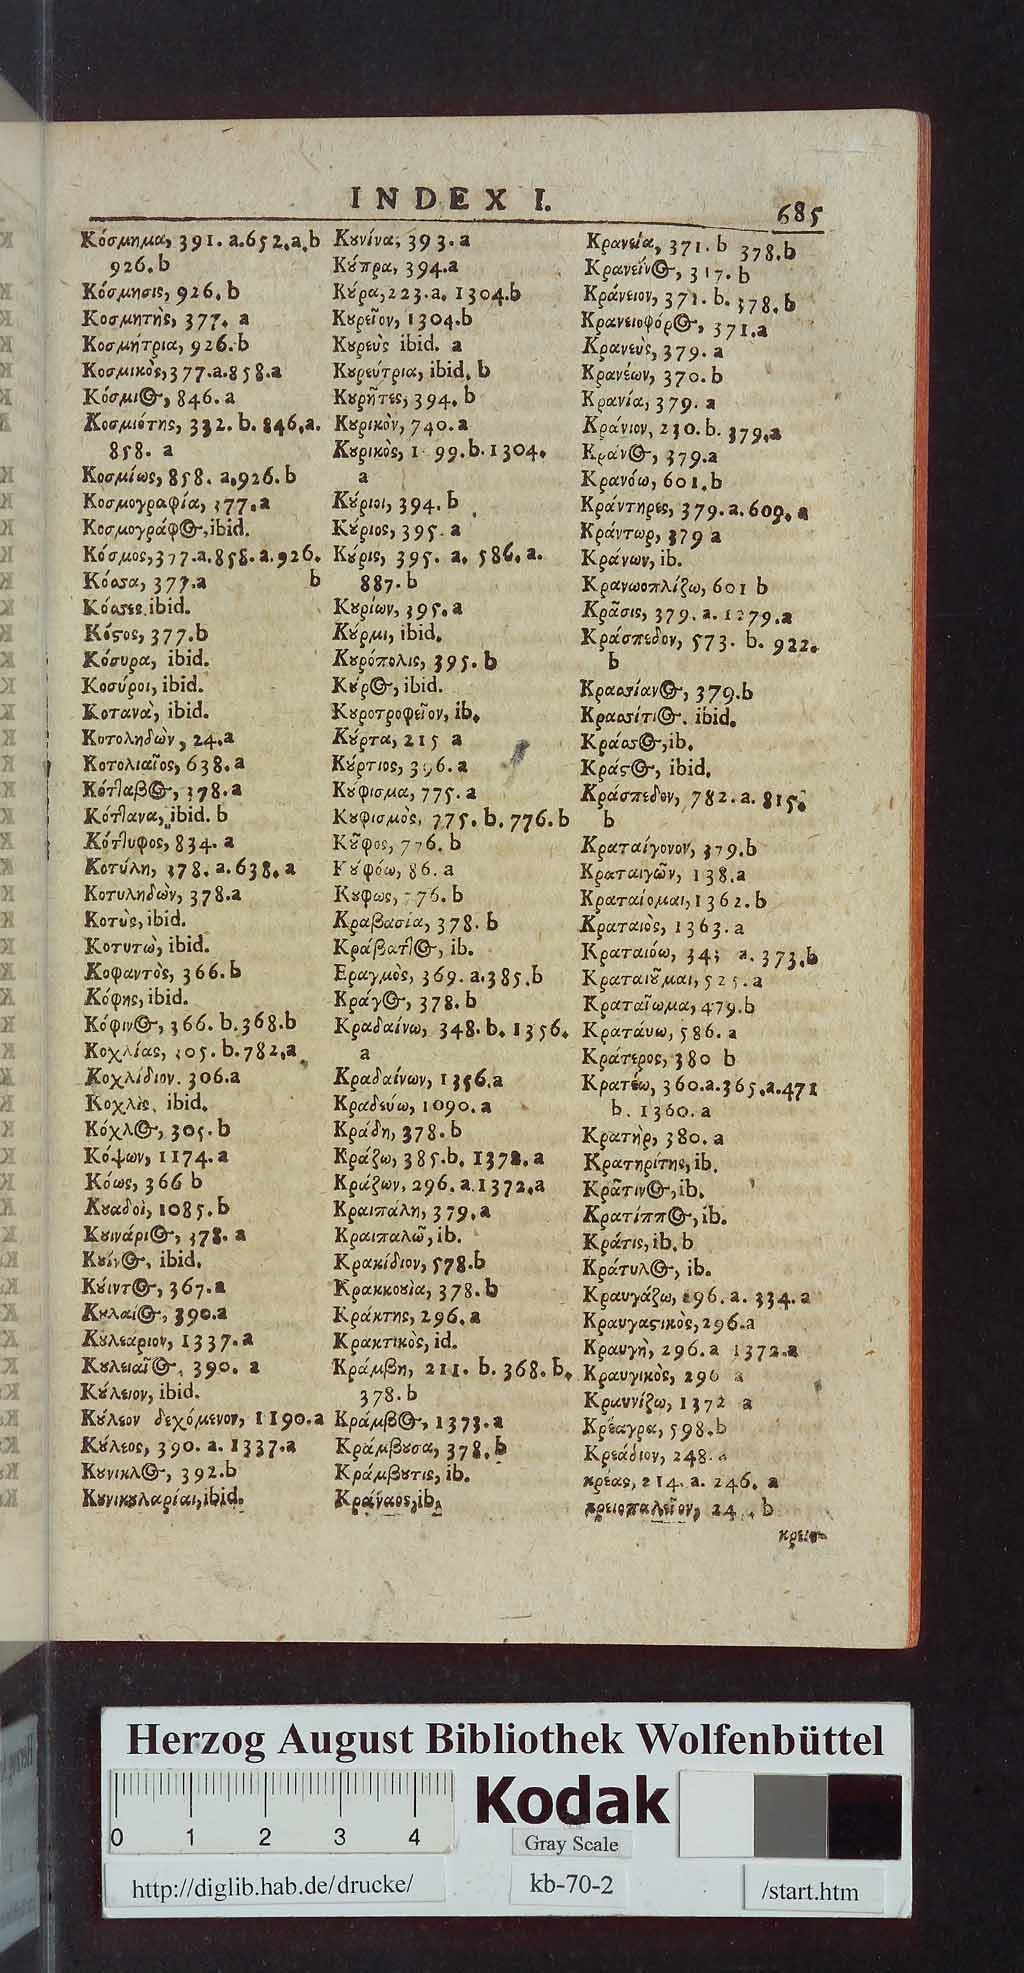 INDEX I.
685
Κόσμημα, 391. a. 652. a, b
926. b
Κόσμησις, 926. b
Κοσμητὴς, 377. a
Κοσμήτρια, 926. b
Κοσμικὸς, 377. a. 858. a
Κόσμιος, 846. a
Κοσμιότης, 332. b. 846. a.
858. a
Κοσμίως, 858. a, 926. b
Κοσμογραφία, 377. a
Κοσμογράφος, ibid.
Κόσμος, 377. a. 858. a. 926.
b
Κόστα, 377. a
Κόστες ibid.
Κόςος, 377. b
Κόσυρα, ibid.
Κοσύροι, ibid.
Κοτανὰ, ibid.
Κοτοληδὼν, 24. a
Κοτολιαῖος, 638. a
Κότταβος, 378. a
Κόττανα, ibid. b
Κόττυφος, 834. a
Κοτύλη, 378. a. 638. a
Κοτυληδὼν, 378. a
Κοτὺς, ibid.
Κοτυτὼ, ibid.
Κοφαντὸς, 366. b
Κόφης, ibid.
Κόφινος, 366. b. 368. b
Κοχλίας, 305. b. 782. a
Κοχλίδιον. 306. a
Κοχλὶς, ibid.
Κόχλος, 305. b
Κόψων, 1174. a
Κόως, 366 b
Κȣαδοὶ, 1085. b
Κȣινάριος, 378. a
Κȣίνος, ibid.
Κȣίντος, 367. a
Κȣλαίος, 390. a
Κȣλεάριον, 1337. a
Κȣλειαῖος, 390. a
Κȣ́λειον, ibid.
Κȣ́λεον δεχόμενον, 1190. a
Κȣ́λεος, 390. a. 1337. a
Κȣνικλος, 392. b
Κȣνικȣλαρίαι, ibid.
Κȣνίνα, 393. a
Κȣ́πρα, 394. a
Κȣ́ρα, 223. a. 1304. b
Κȣρεῖον, 1304. b
Κȣρεὺς ibid. a
Κȣρεύτρια, ibid. b
Κȣρῆτες, 394. b
Κȣρικὸν, 740. a
Κȣρικὸς, 99. b. 1304.
a
Κȣ́ριοι, 394. b
Κȣ́ριος, 395. a
Κȣ́ρις, 395. a. 586. a.
887. b
Κȣρίων, 395. a
Κȣ́ρμι, ibid.
Κȣρόπολις, 395. b
Κȣ́ρος, ibid.
Κȣροτροφεῖον, ib.
Κȣ́ρτα, 215 a
Κȣ́ρτιος, 396. a
Κȣ́φισμα, 775. a
Κȣφισμὸς, 775. b. 776. b
Κȣ̃φος, 776. b
Κȣφόω, 86. a
Κȣφως, 776. b
Κραβασία, 378. b
Κράβαττος, ib.
Εραγμὸς, 369. a. 385. b
Κράγος, 378. b
Κραδαίνω, 348. b. 1356.
a
Κραδαίνων, 1356. a
Κραδεύω, 1090. a
Κράδη, 378. b
Κράζω, 385. b. 1372. a
Κράζων, 296. a. 1372. a
Κραιπάλη, 379. a
Κραιπαλῶ, ib.
Κρακίδιον, 578. b
Κρακκονία, 378. b
Κράκτης, 296. a
Κρακτικὸς, id.
Κράμβη, 211. b. 368. b.
378. b
Κράμβος, 1373. a
Κράμβȣσα, 378. b
Κράμβȣτις, ib.
Κράναος, ib.
Κρανεία, 371. b 378. b
Κρανεῖνος, 317. b
Κράνειον, 371. b. 378. b
Κρανειοφόρος, 371. a
Κρανεὺς, 379. a
Κρανέων, 370. b
Κρανία, 379. a
Κράνιον, 230. b. 379. a
Κράνος, 379. a
Κρανόω, 601. b
Κράντηρες, 379. a. 609. a
Κράντωρ, 379 a
Κράνων, ib.
Κρανωοπλίζω, 601 b
Κρᾶσις, 379. a. 1279. a
Κράσπεδον, 573. b. 922.
b
Κραστίανος, 379. b
Κραστίτιος. ibid.
Κράστος, ib.
Κράςος, ibid.
Κράσπεδον, 782. a. 815.
b
Κραταίγονον, 379. b
Κραταιγῶν, 138. a
Κραταίομαι, 1362. b
Κραταιὸς, 1363. a
Κραταιόω, 343 a. 373. b
Κραταιȣ̃μαι, 525. a
Κραταῖωμα, 479. b
Κρατάυω, 586. a
Κράτερος, 380 b
Κρατέω, 360. a. 365. a. 471
b. 1360. a
Κρατὴρ, 380. a
Κρατηρίτης, ib.
Κρᾶτινος, ib.
Κρατίππος, ib.
Κράτις, ib. b
Κράτυλος, ib.
Κραυγάζω, 296. a. 334. a
Κραυγαςικὸς, 296. a
Κραυγὴ, 296. a 1372. a
Κραυγικὸς, 296 a
Κραυνίζω, 1372 a
Κρέαγρα, 598. b
Κρεάδιον, 248. a
κρέας, 214. a. 246. a
κρειοπαλεῖον, 24 . b
κρειο-
Herzog August Bibliothek Wolfenbüttel
0 1 2 3 4
Kodak
Gray Scale
http://diglib.hab.de/drucke/
kb-70-2
/start.htm